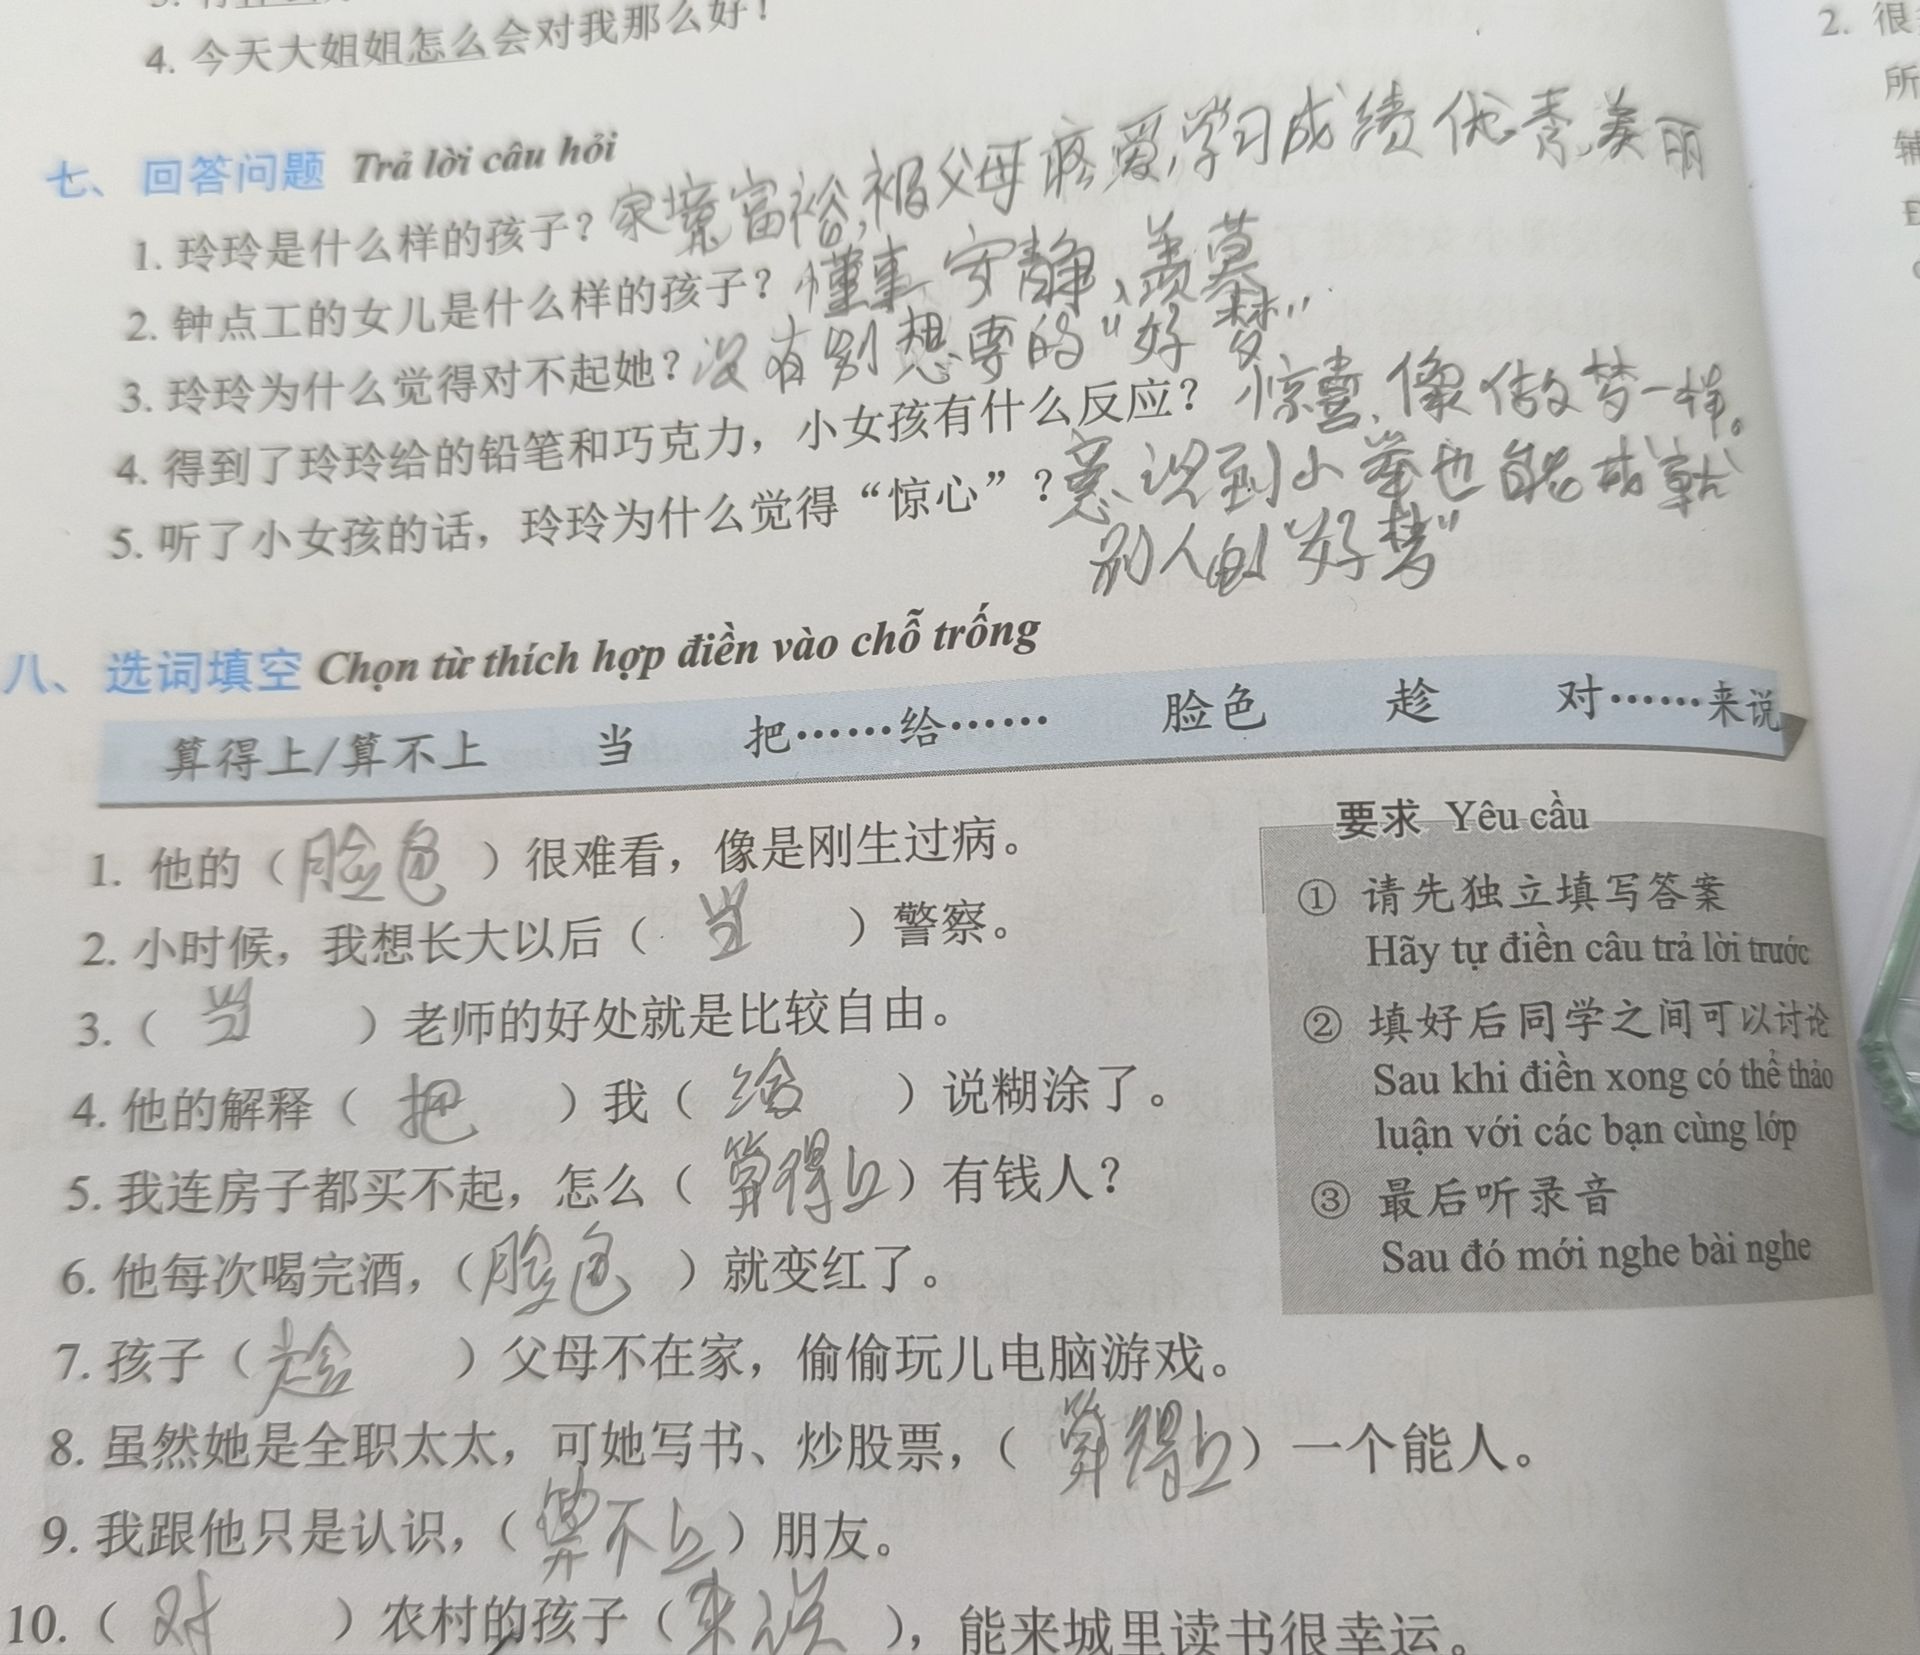 4. 今天大姐姐怎么会对我那么好！
七、回答问题 Trả lời câu hỏi
1. 玲玲是什么样的孩子？家境富裕,被父母疼爱,学习成绩优秀,美丽
2. 钟点工的女儿是什么样的孩子？懂事 安静、羡慕
3. 玲玲为什么觉得对不起她？没有别想要的“好梦”
4. 得到了玲玲给的铅笔和巧克力，小女孩有什么反应？惊喜、像做梦一样。
5. 听了小女孩的话，玲玲为什么觉得“惊心”？意识到小举也能成就
别人的“好梦”
八、选词填空 Chọn từ thích hợp điền vào chỗ trống
算得上/算不上 当 把……给…… 脸色 趁 对……来说
1. 他的（脸色）很难看，像是刚生过病。
2. 小时候，我想长大以后（当）警察。
3.（当）老师的好处就是比较自由。
4. 他的解释（把）我（给）说糊涂了。
5. 我连房子都买不起，怎么（算得上）有钱人？
6. 他每次喝完酒，（脸色）就变红了。
7. 孩子（趁）父母不在家，偷偷玩儿电脑游戏。
8. 虽然她是全职太太，可她写书、炒股票，（算得上）一个能人。
9. 我跟他只是认识，（算不上）朋友。
10.（对）农村的孩子（来说），能来城里读书很幸运。
要求 Yêu cầu
① 请先独立填写答案
Hãy tự điền câu trả lời trước
② 填好后同学之间可以讨论
Sau khi điền xong có thể thảo
luận với các bạn cùng lớp
③ 最后听录音
Sau đó mới nghe bài nghe
2. 很
所
辅